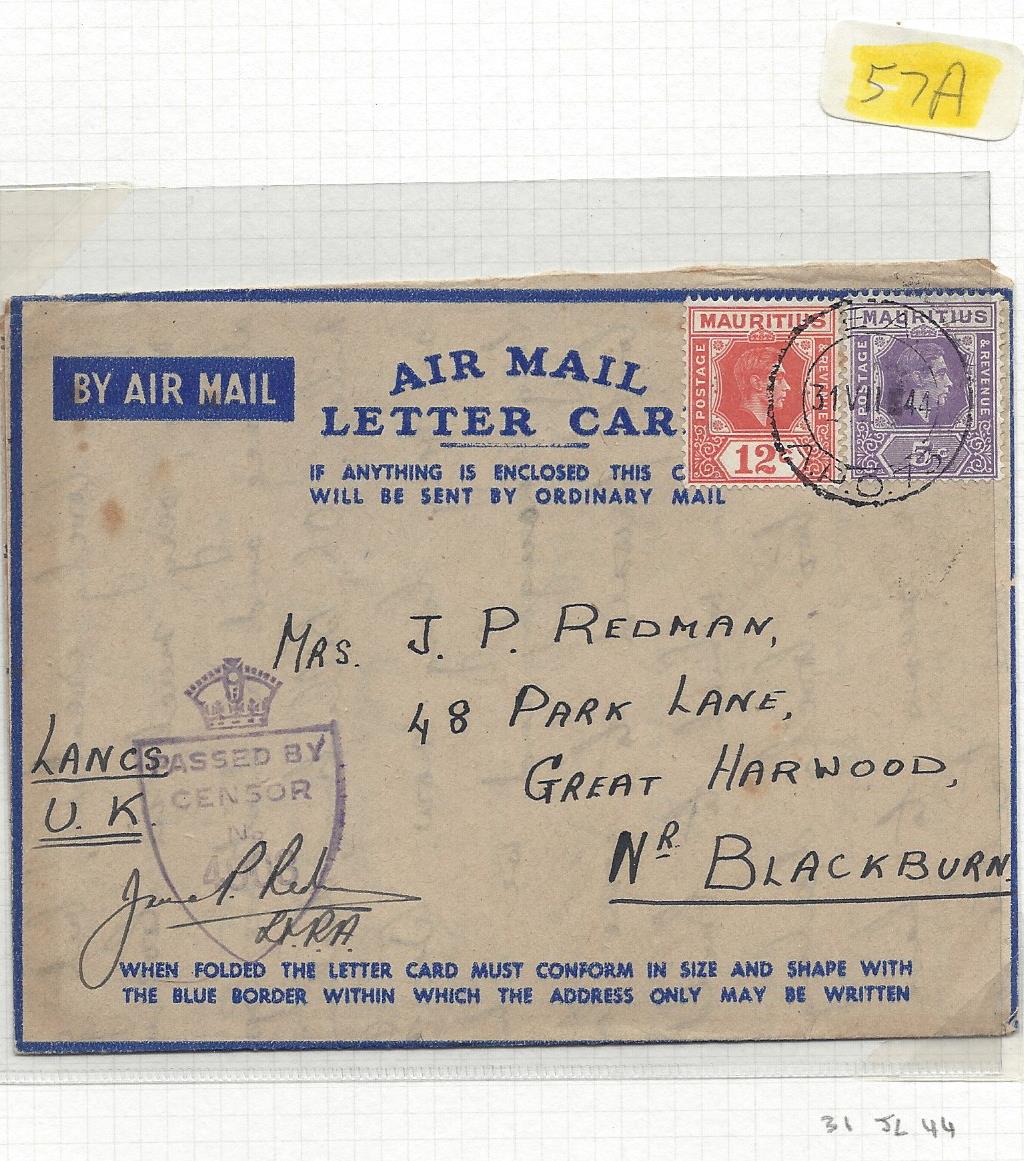 57A
BY AIR MAIL
AIR MAIL
LETTER CAR
IF ANYTHING IS ENCLOSED THIS C
WILL BE SENT BY ORDINARY MAIL
MAURITIUS
POSTAGE
& REVENUE
12c
MAURITIUS
POSTAGE
& REVENUE
5c
31 VII 44
A.P.O.
MRS. J. P. REDMAN,
48 PARK LANE,
GREAT HARWOOD,
NR. BLACKBURN,
LANCS
U.K.
PASSED BY
CENSOR
No
P. Redman
WHEN FOLDED THE LETTER CARD MUST CONFORM IN SIZE AND SHAPE WITH
THE BLUE BORDER WITHIN WHICH THE ADDRESS ONLY MAY BE WRITTEN
31 JL 44